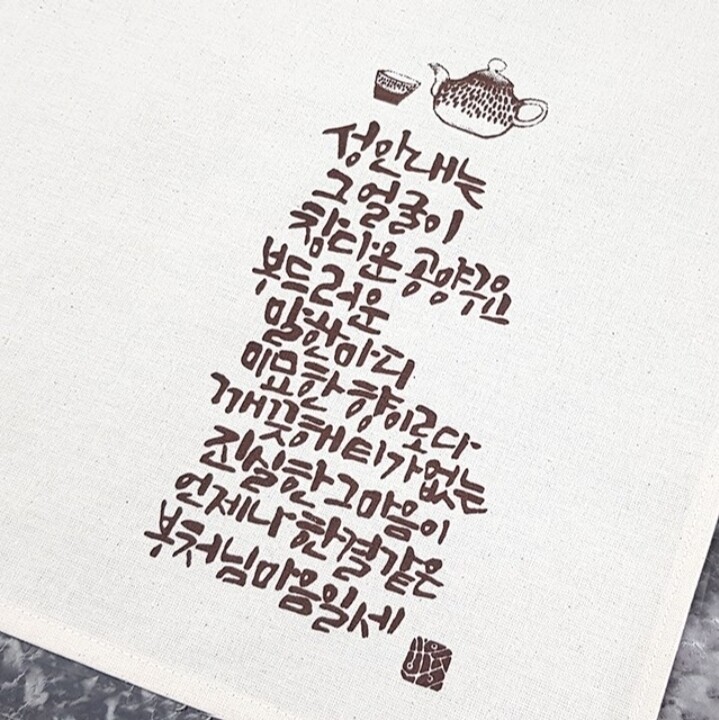 성안내는
그얼굴이
참다운 공양구요
부드러운
말한마디
미묘한 향이로다
깨끗해 티가없는
진실한 그마음이
언제나 한결같은
부처님마음일세